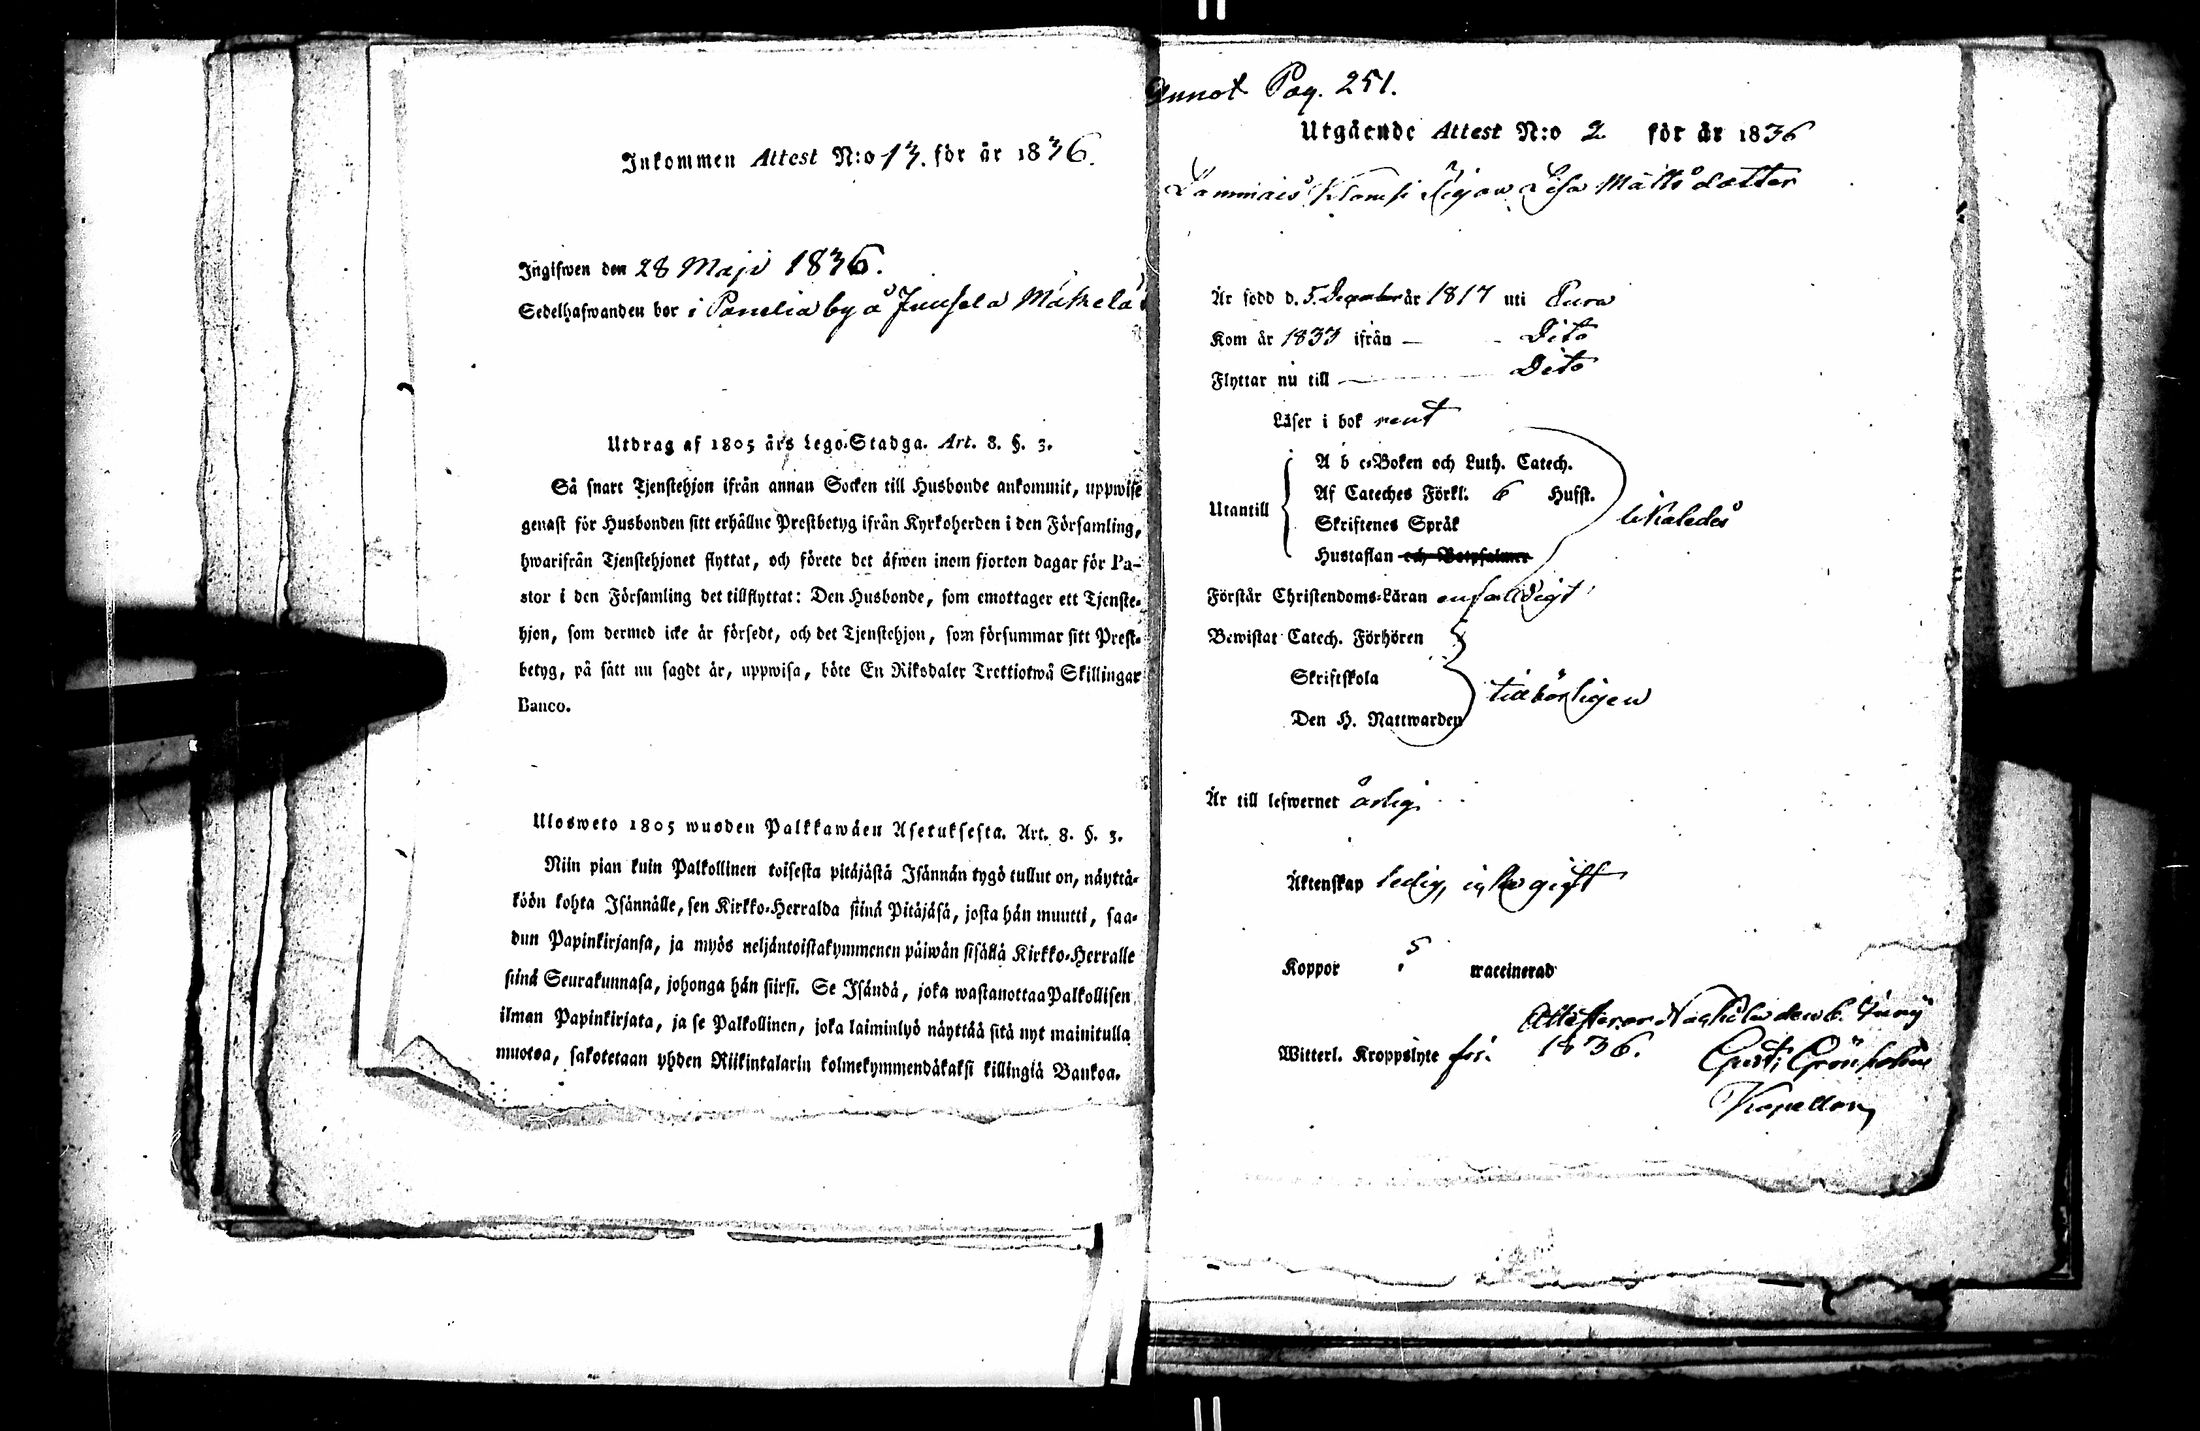 Inkommen Attest N:o 13. för år 1836.
Ingifwen den 28 Maji 1836.
Sedelhafwanden bor i Panelia by å Juusela Mäkelä
Utdrag af 1805 års Lego-Stadga. Art. 8. §. 3.
Så snart Tjenstehjon ifrån annan Socken till Husbonde ankommit, uppwise
genast för Husbonden sitt erhållne Prestbetyg ifrån Kyrkoherden i den Församling,
hwarifrån Tjenstehjonet flyttat, och förete det äfwen inom fjorton dagar för Pa-
stor i den Församling det tillflyttat: Den Husbonde, som emottager ett Tjenste-
hjon, som dermed icke är försedt, och det Tjenstehjon, som försummar sitt Prest-
betyg, på sätt nu sagdt är, uppwisa, böte En Riksdaler Trettiotwå Skillingar
Banco.
Ulosweto 1805 wuoden Palkkawäen Asetuksesta. Art. 8. §. 3.
Niin pian kuin Palkollinen toisesta pitäjästä Isännän tygö tullut on, näyttä-
köön kohta Isännälle, sen Kirkko-Herralda siinä Pitäjäsä, josta hän muutti, saa-
dun Papinkirjansa, ja myös neljäntoistakymmenen päiwän sisällä Kirkko-Herralle
siinä Seurakunnasa, johonga hän siirsi. Se Isändä, joka wastanottaa Palkollisen
ilman Papinkirjata, ja se Palkollinen, joka laiminlyö näyttää sitä nyt mainitulla
muotoa, sakotetaan yhden Riikintalarin kolmekymmendäkaksi killingiä Bankoa.
Annot Pag. 251.
Utgående Attest N:o 2 för år 1836
Lammais Klomsi Pigan Lisa Mattsdotter
Är född d. 5 December år 1817 uti Eura
Kom år 1833 ifrån — - Dito
Flyttar nu till — Dito
Läser i bok rent
A b c-Boken och Luth. Catech.
Af Cateches Förkl. 6 Hufst.
Utantill
Skriftenes Språk
likaledes
Hustaflan och Botpsalmer
Förstår Christendoms-Läran enfaldigt
Bewistat Catech. Förhören
Skriftskola
tillbörligen
Den H. Nattwarden
Är till lefwernet ärlig
Äktenskap ledig, icke gift
Koppor vaccinerad
Attesterar den 6. Junij
Witterl. Kroppslyte fri. 1836.
Gust: Grönholm
Kapellan